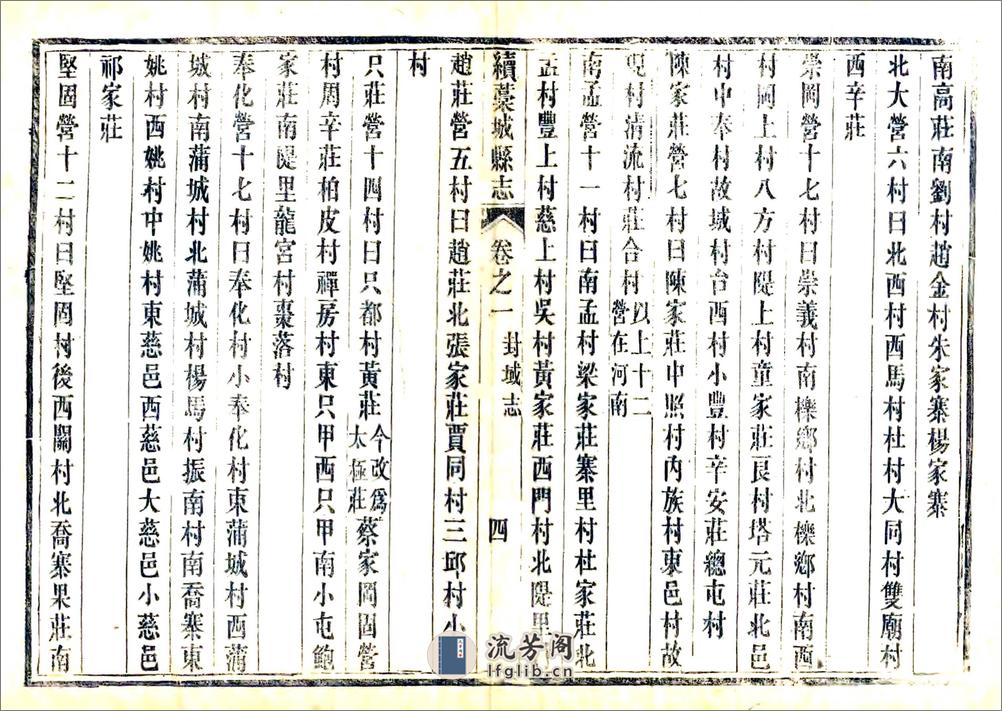 南高莊南劉村趙金村朱家寨楊家寨
北大營六村曰北西村西馬村杜村大同村雙廟村
西辛莊
崇岡營十七村曰崇義村南欒鄉村北欒鄉村南西
村岡上村八方村隄上村童家莊良村塔元莊北邑
村中奉村故城村台西村小豐村辛安莊總屯村
陳家莊營七村曰陳家莊中照村內族村東邑村故
村清流村莊合村以上十二營在河南
南孟營十一村曰南孟村梁家莊寨里村杜家莊北
孟村豐上村慈上村吳村黃家莊西門村北隄里
續藁城縣志 卷之一 封域志 四
趙莊營五村曰趙莊北張家莊賈同村三邱村小
村
只莊營十四村曰只都村黃莊今改爲太極莊蔡家岡固營
村周辛莊柏皮村禪房村東只甲西只甲南小屯鮑
家莊南隄里龍宮村棗落村
奉化營十七村曰奉化村小奉化村東蒲城村西蒲
城村南蒲城村北蒲城村楊馬村振南村南喬寨東
姚村西姚村中姚村東慈邑西慈邑大慈邑小慈邑
祁家莊
堅固營十二村曰堅固村後西關村北喬寨果莊南
流芳阁
lfglib.cn